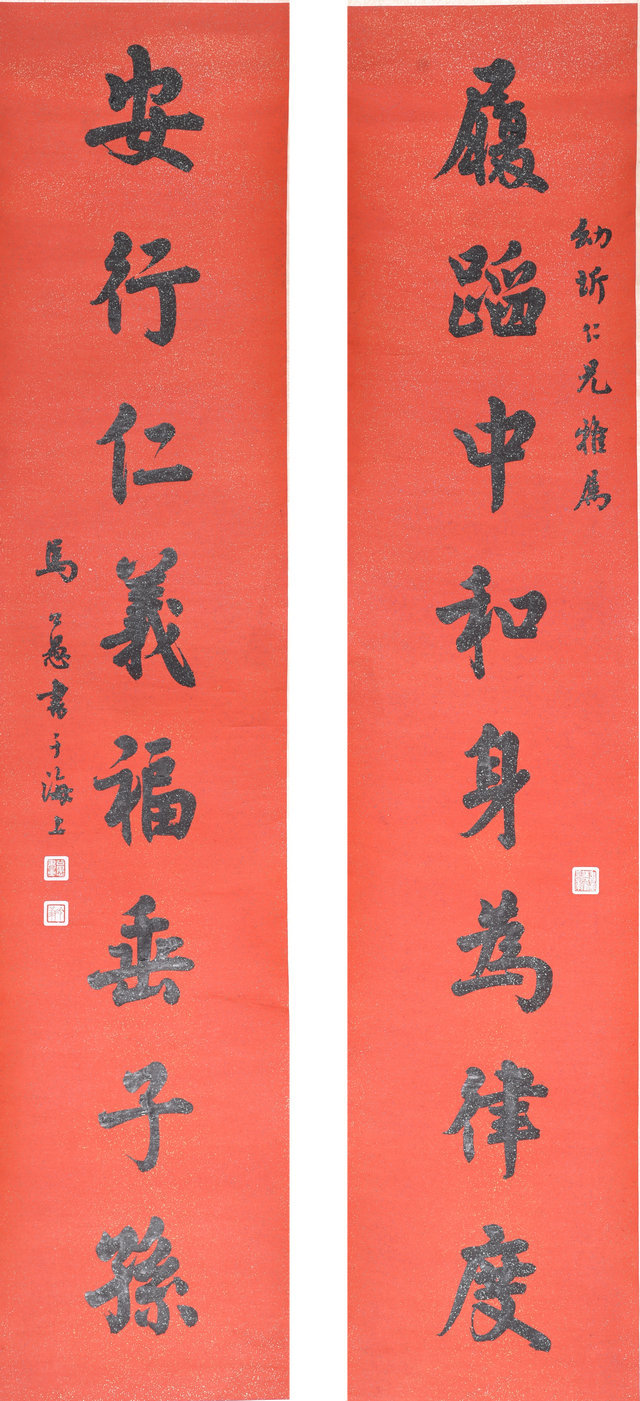 履蹈中和身為律度
幼圻仁兄雅屬
安行仁義福垂子孫
馬公愚書于海上